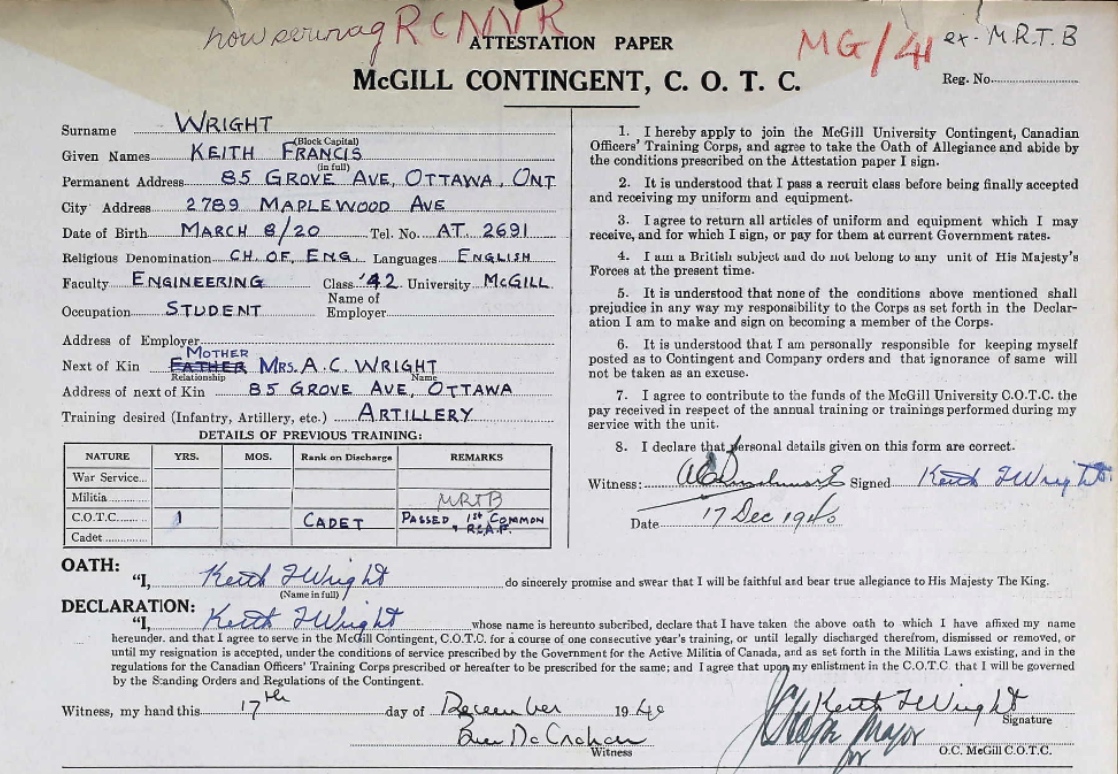 now serving RCNVR
MG/41 ex-M.R.T.B
ATTESTATION PAPER
McGILL CONTINGENT, C. O. T. C.
Reg. No.
Surname WRIGHT
(Block Capital)
Given Names KEITH FRANCIS
(in full)
Permanent Address 85 GROVE AVE, OTTAWA, ONT
City Address 2789 MAPLEWOOD AVE
Date of Birth MARCH 8/20 Tel. No. AT. 2691
Religious Denomination CH. OF. ENG. Languages ENGLISH
Faculty ENGINEERING Class '42 University McGILL
Occupation STUDENT Name of Employer
Address of Employer
MOTHER
Next of Kin FATHER MRS. A.C. WRIGHT
Relationship Name
Address of next of Kin 85 GROVE AVE, OTTAWA
Training desired (Infantry, Artillery, etc.) ARTILLERY
DETAILS OF PREVIOUS TRAINING:
NATURE YRS. MOS. Rank on Discharge REMARKS
War Service
Militia MRTB
C.O.T.C. 1 CADET PASSED, 1st COMMON
Cadet R.C.A.F.
1. I hereby apply to join the McGill University Contingent, Canadian
Officers' Training Corps, and agree to take the Oath of Allegiance and abide by
the conditions prescribed on the Attestation paper I sign.
2. It is understood that I pass a recruit class before being finally accepted
and receiving my uniform and equipment.
3. I agree to return all articles of uniform and equipment which I may
receive, and for which I sign, or pay for them at current Government rates.
4. I am a British subject and do not belong to any unit of His Majesty's
Forces at the present time.
5. It is understood that none of the conditions above mentioned shall
prejudice in any way my responsibility to the Corps as set forth in the Declar-
ation I am to make and sign on becoming a member of the Corps.
6. It is understood that I am personally responsible for keeping myself
posted as to Contingent and Company orders and that ignorance of same will
not be taken as an excuse.
7. I agree to contribute to the funds of the McGill University C.O.T.C. the
pay received in respect of the annual training or trainings performed during my
service with the unit.
8. I declare that personal details given on this form are correct.
Witness: Signed Keith F Wright
Date 17 Dec 1940
OATH:
"I, Keith F Wright do sincerely promise and swear that I will be faithful and bear true allegiance to His Majesty The King.
(Name in full)
DECLARATION:
"I, Keith F Wright whose name is hereunto subcribed, declare that I have taken the above oath to which I have affixed my name
hereunder. and that I agree to serve in the McGill Contingent, C.O.T.C. for a course of one consecutive year's training, or until legally discharged therefrom, dismissed or removed, or
until my resignation is accepted, under the conditions of service prescribed by the Government for the Active Militia of Canada, and as set forth in the Militia Laws existing, and in the
regulations for the Canadian Officers' Training Corps prescribed or hereafter to be prescribed for the same; and I agree that upon my enlistment in the C.O.T.C. that I will be governed
by the Standing Orders and Regulations of the Contingent.
Witness, my hand this 17th day of December 1940 Keith F Wright
Signature
Witness
Major
for O.C. McGill C.O.T.C.